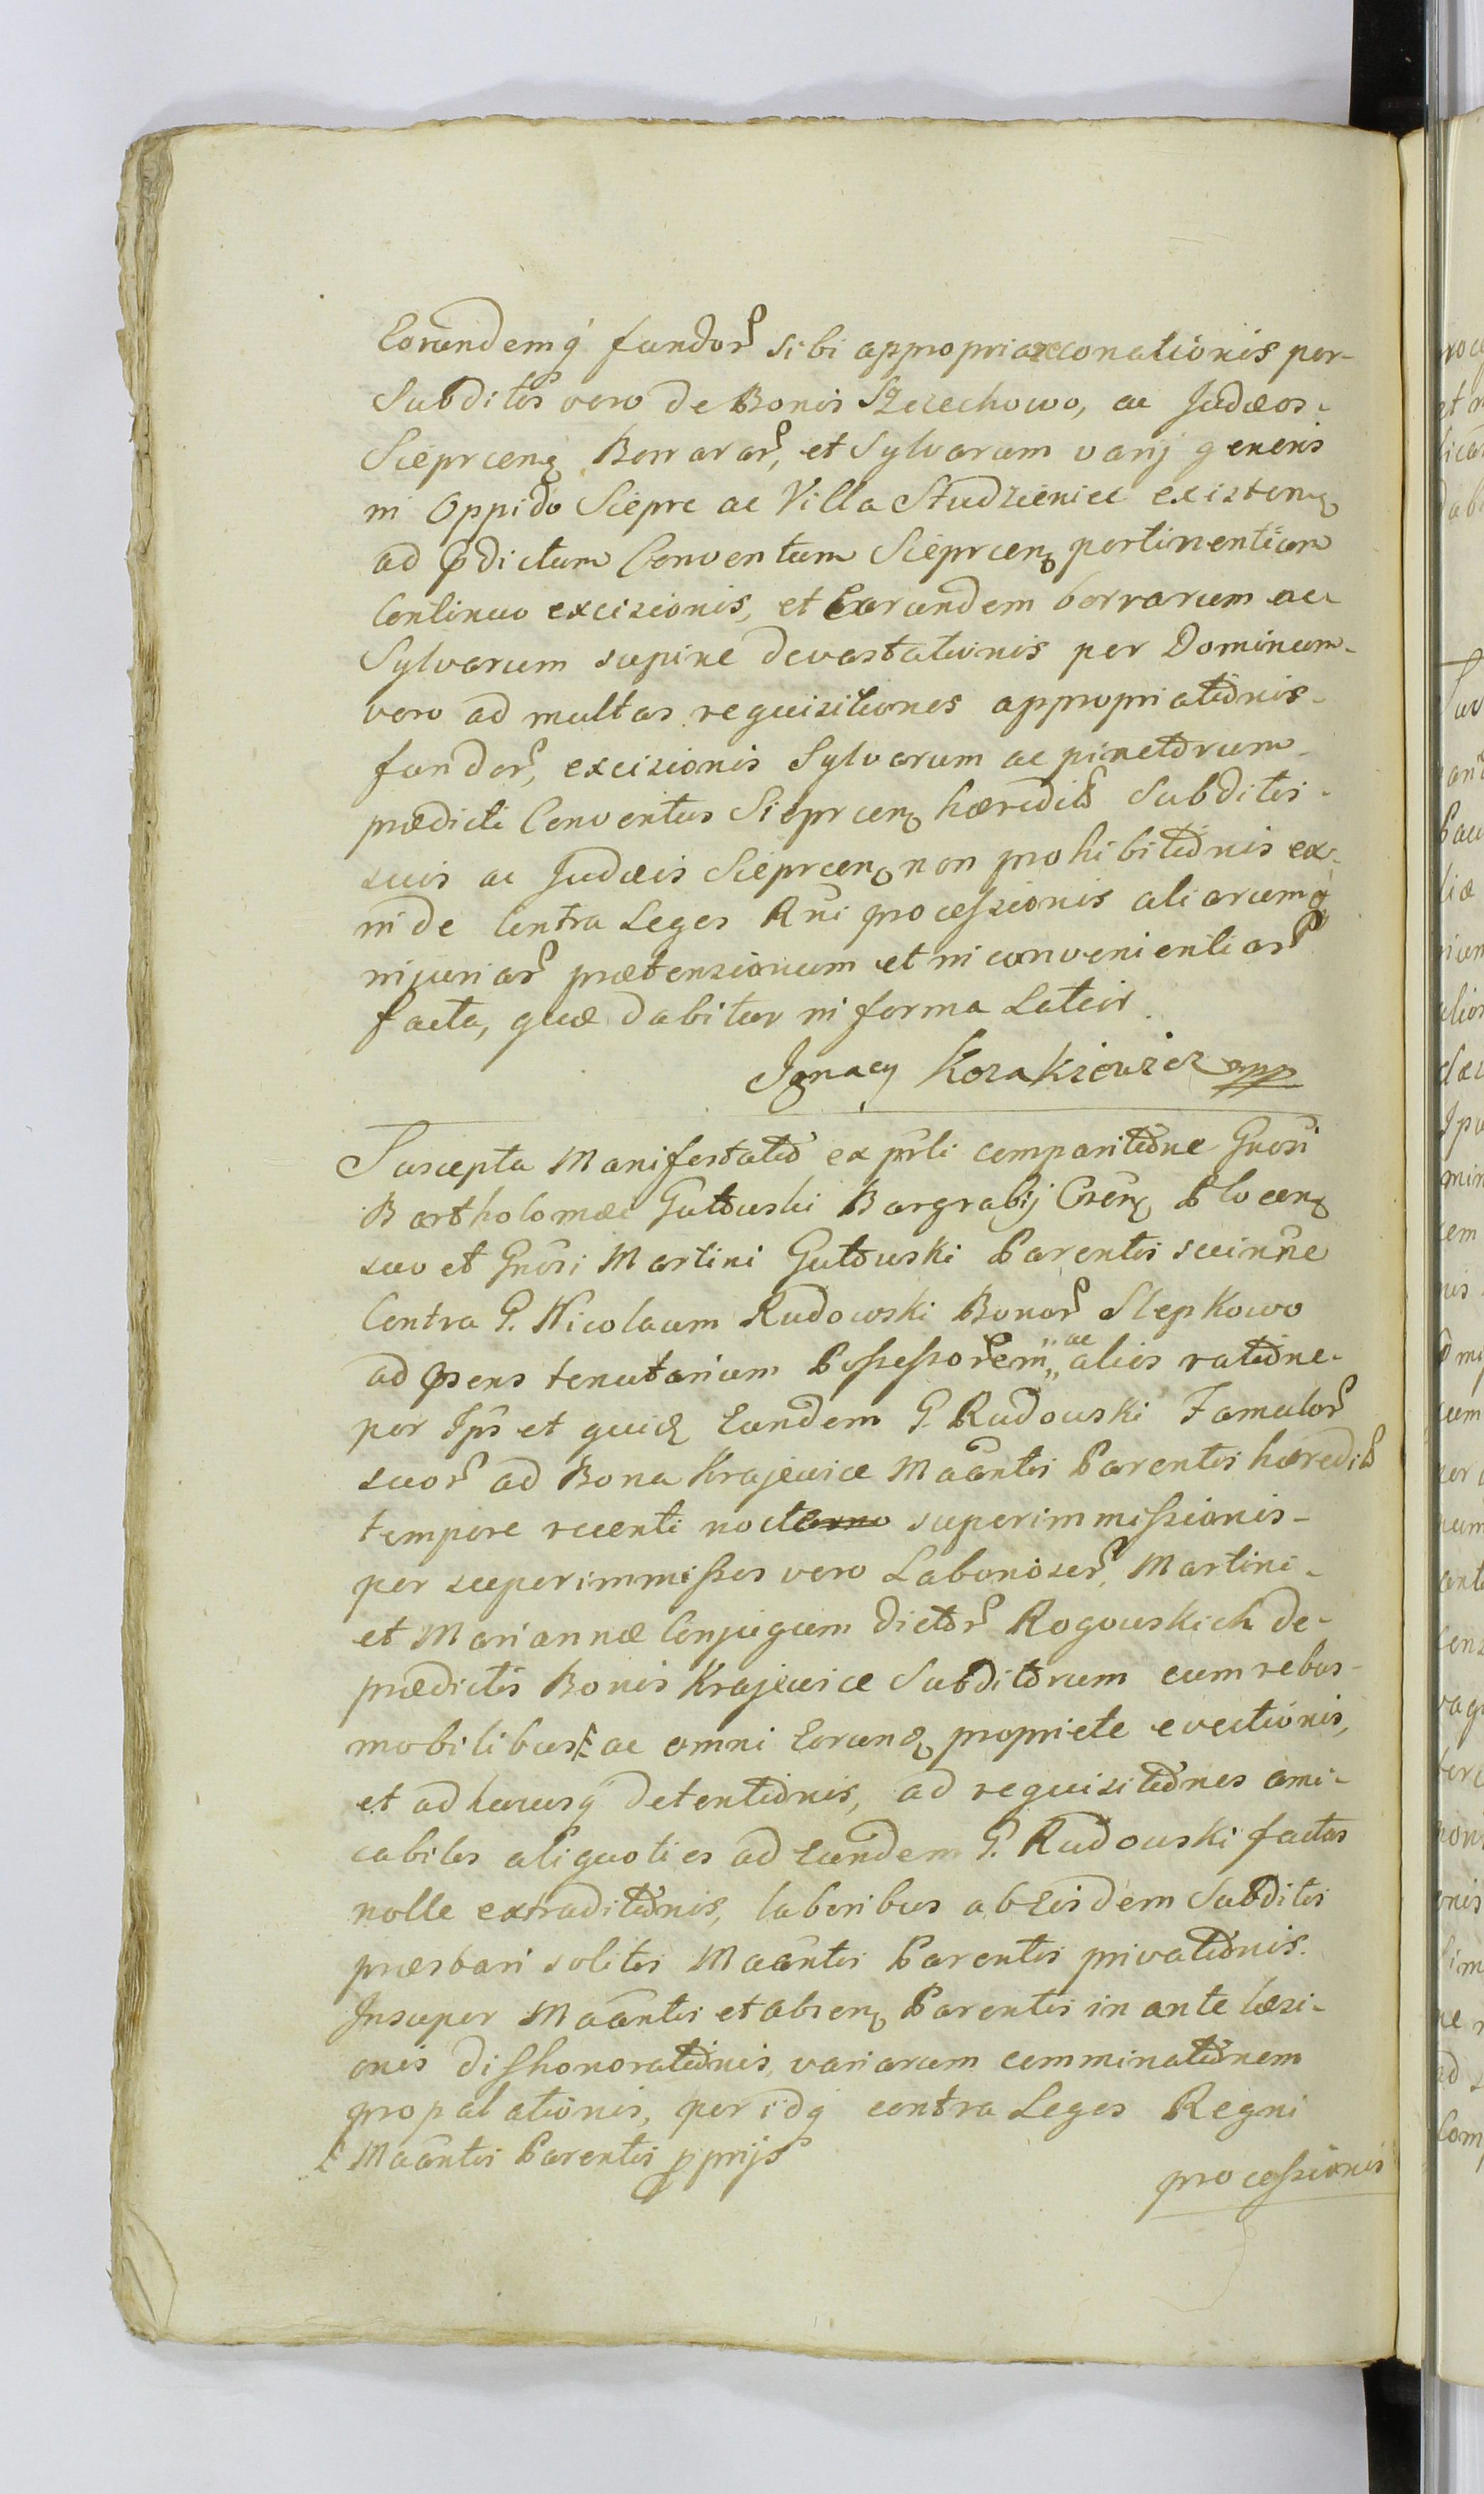 Eorundemq́ fundor̃ sibi appropriare conationis per-
Subditos vero de Bonis Szczechowo, ac Judæos-
Sieprcenꝫ Borrarar̃, et Sylvarum varij generis
in Oppido Sieprc ac Villa Studzieniec existenꝫ
ad p̃dictum Conventum Sieprcenꝫ pertinentium
Continuo excisionis, et Earundem borrarum ac
Sylvarum supine devastationis per Dominum-
vero ad multas requisitiones appropriationis-
fundor̃, excisionis Sylvarum ac pinetorum-
prædicti Conventus Sieprcenꝫ hæredits Subditis-
suis ac Judæis Sieprcenꝫ non prohibitionis ex-
inde Contra Leges Rñi processionis aliarumq́
injuriar̃ prætensionum et inconvenientiar̃
facta, quæ dabitur in forma Lateis.
Ignacy Kozakiewicz mpp
Suscepta Manifestatio ex pñli comparitione Gñosi
Bartholomæi Gutowski Burgrabij Crenꝫ Plocenꝫ
suo et Gñosi Martini Gutowski Parentis sui nñe
Contra G. Nicolaum Rudowski Bonor̃ Slepkowo
ad p̃sens tenutarium Possessorem „ac„ alios ratione-
per Ips̃ et quidꝫ Eundem G. Rudowski Famulor̃
suor̃ ad Bona Krajewice Maãntis Parentis hæredits
tempore recenti nocturno superimmissionis-
per superimmissos vero Laboriosor̃ Martini-
et Mariannæ Conjugum dictor̃ Rogowskich de-
prædictis Bonis Krajewice Subditorum cum rebus-
mobilibus ac omni Eorundꝫ propriete evectionis,
et adhucusq́ detentionis, ad requisitiones ami-
cabiles aliquoties ad Eundem G. Rudowski factas
nolle extraditionis, laboribus ab Eisdem Subditis
præstari solitis Maãntis Parentis privationis.
Insuper Maãntis et absenꝫ Parentis in ante læsi-
onis dishonorationis, variarum comminationem
propalationis, per idq́ contra Leges Regni
Maãntis Parentis p̱prijs
processionis